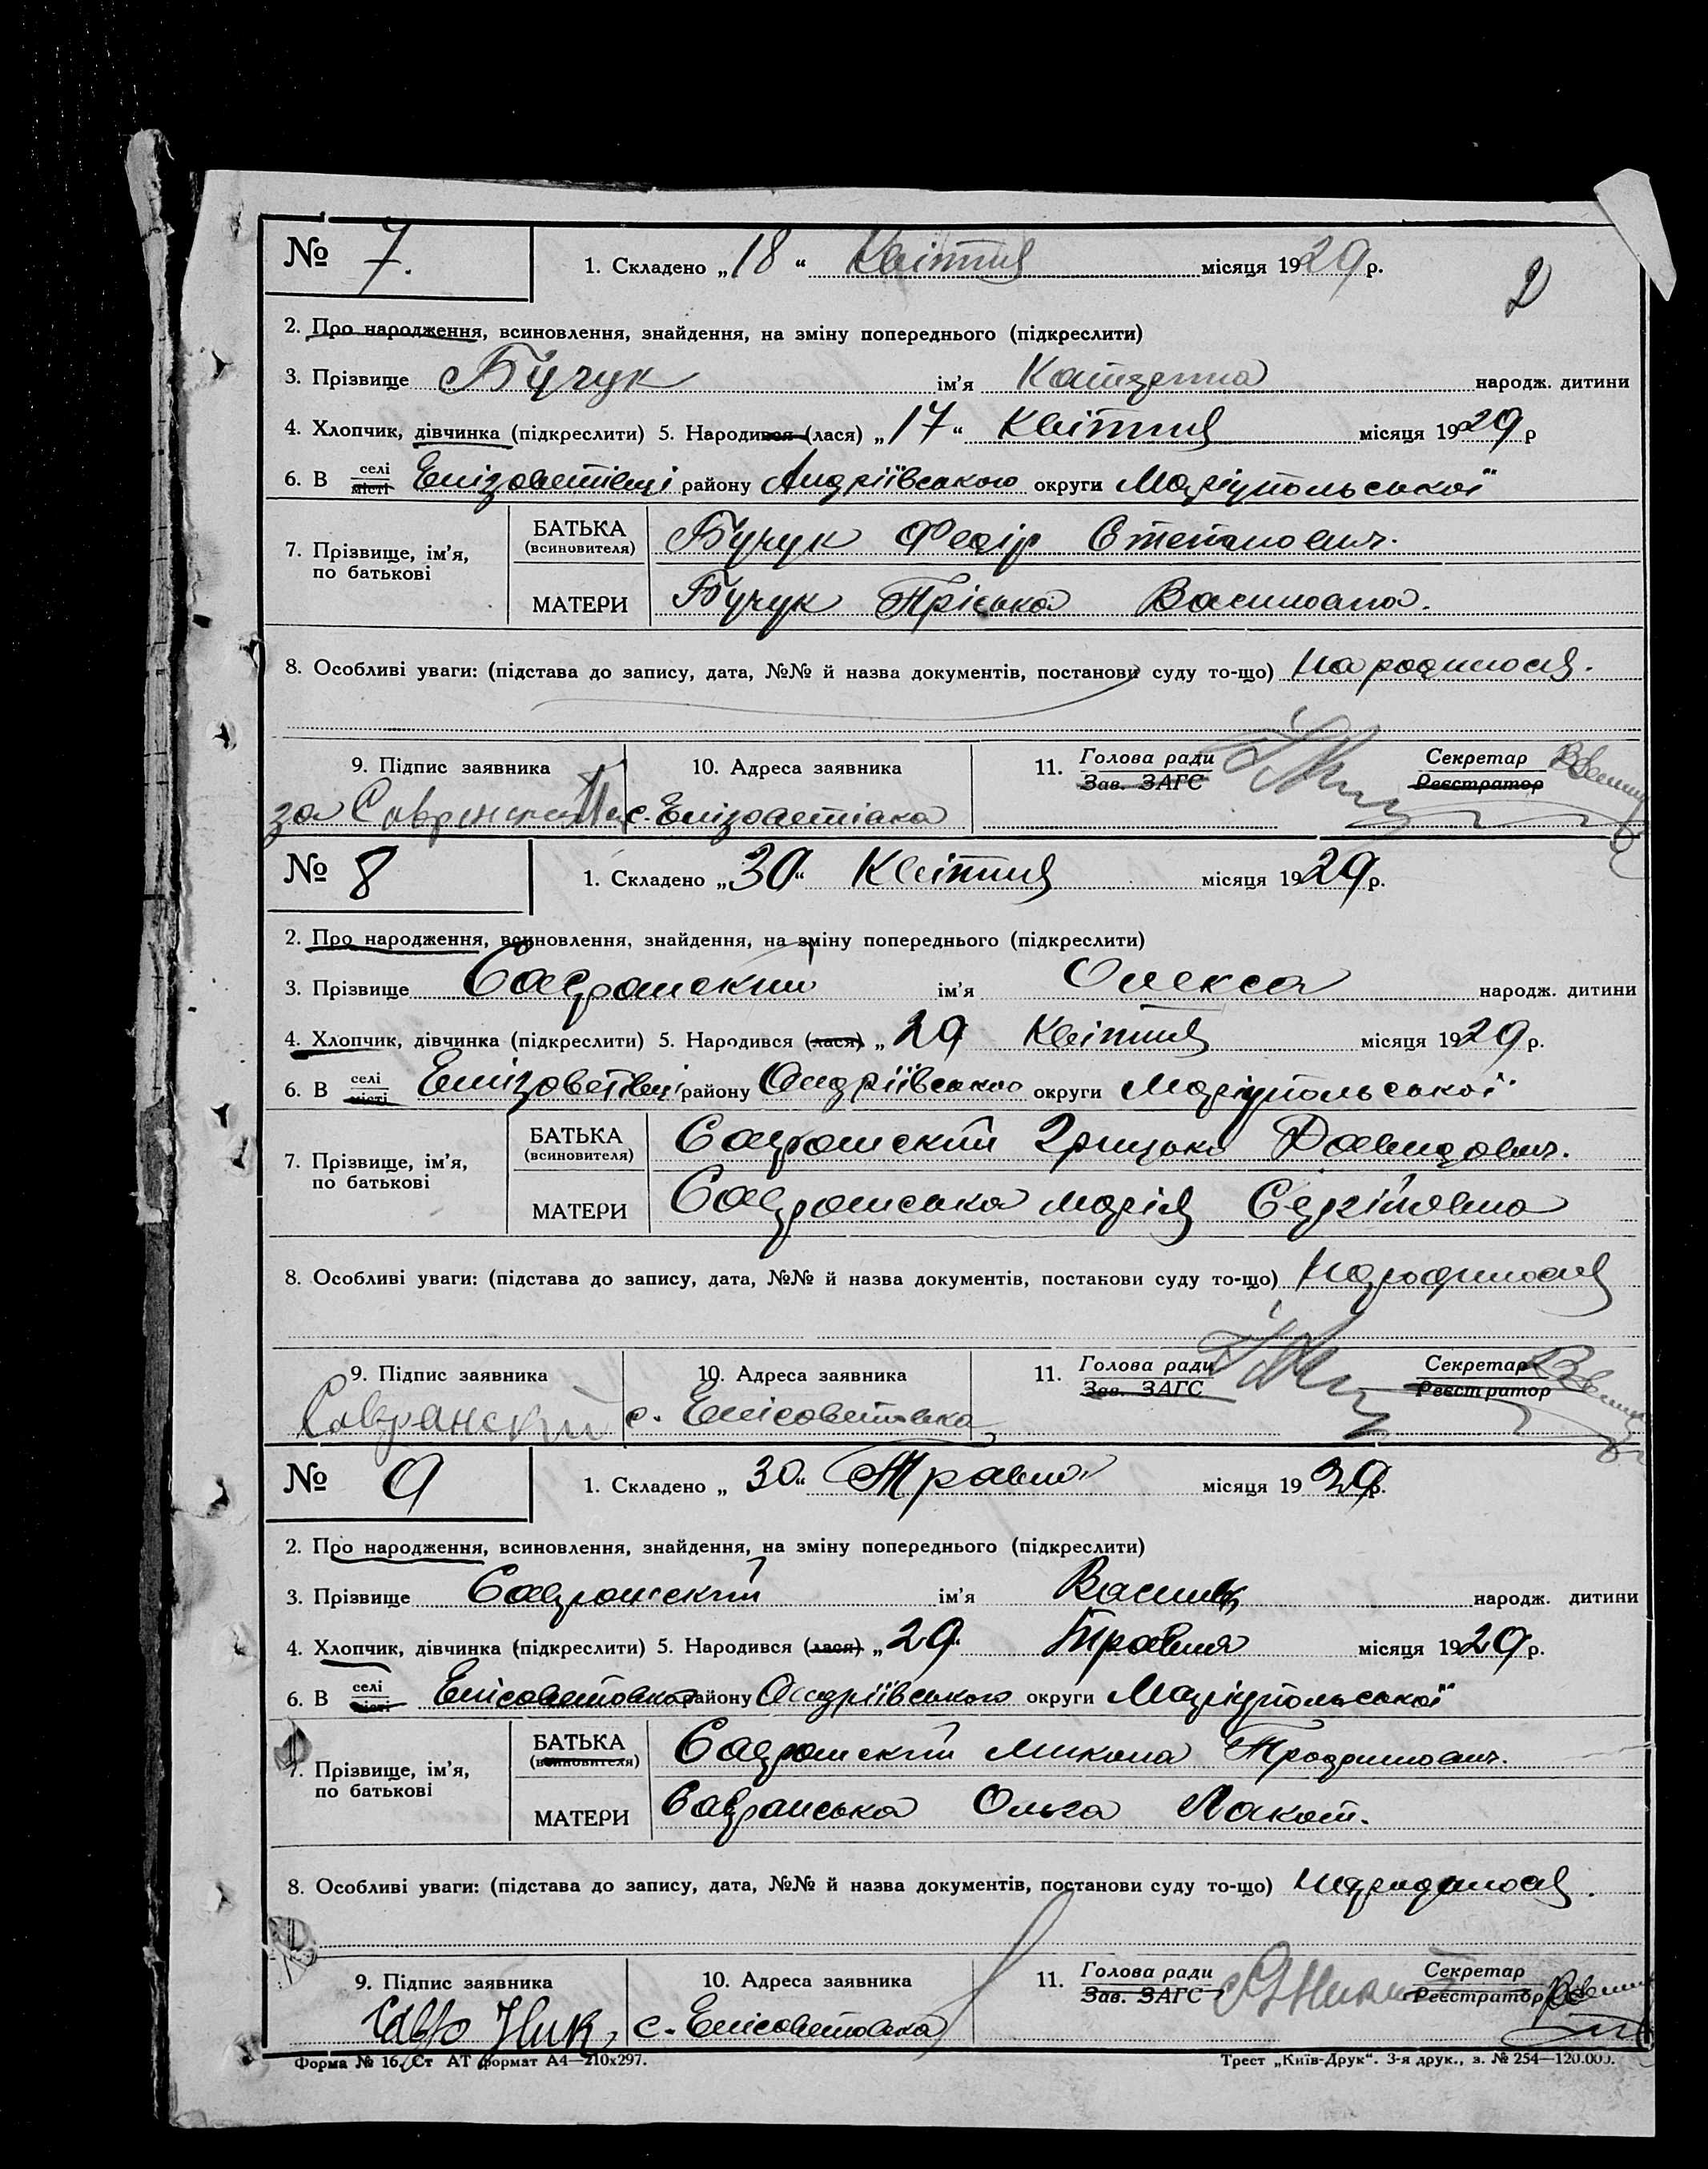 2
№ 7. 1. Складено „18“ Квітня місяця 1929 р.
2. Про народження, всиновлення, знайдення, на зміну попереднього (підкреслити)
3. Прізвище Бучук ім'я Катерина народж. дитини
4. Хлопчик, дівчинка (підкреслити) 5. Народився (лася) „17“ Квітня місяця 1929 р
6. В селі місті Елізаветівці району Андріївського округи Маріупольської
7. Прізвище, ім'я, по батькові
БАТЬКА (всиновителя) Бучук Федір Степанович.
МАТЕРИ Бучук Пріська Василовна.
8. Особливі уваги: (підстава до запису, дата, №№ й назва документів, постанови суду то-що) народилося.
9. Підпис заявника 10. Адреса заявника 11. Голова ради Зав. ЗАГС Секретар Реєстратор
за с. Елізаветівка
№ 8 1. Складено „30“ Квітня місяця 1929 р.
2. Про народження, всиновлення, знайдення, на зміну попереднього (підкреслити)
3. Прізвище Савранский ім'я Олекса народж. дитини
4. Хлопчик, дівчинка (підкреслити) 5. Народився (лася) „29 Квітня місяця 1929 р.
6. В селі місті Елізаветівці району Андріївського округи Маріупольської
7. Прізвище, ім'я, по батькові
БАТЬКА (всиновителя) Савранский Грицько Давидович.
МАТЕРИ Савранська Марія Сергіївна
8. Особливі уваги: (підстава до запису, дата, №№ й назва документів, постанови суду то-що) народилося
9. Підпис заявника 10. Адреса заявника 11. Голова ради Зав. ЗАГС Секретар Реєстратор
Савранский с. Елісаветовка
№ 9 1. Складено „30“ Травня місяця 1929 р.
2. Про народження, всиновлення, знайдення, на зміну попереднього (підкреслити)
3. Прізвище Савранский ім'я Василь народж. дитини
4. Хлопчик, дівчинка (підкреслити) 5. Народився (лася) „29“ Травня місяця 1929 р.
6. В селі місті Елісаветовка району Андріївського округи Маріупольської
7. Прізвище, ім'я, по батькові
БАТЬКА (всиновителя) Савранский Микола
МАТЕРИ Савранська Ольга
8. Особливі уваги: (підстава до запису, дата, №№ й назва документів, постанови суду то-що) народилося.
9. Підпис заявника 10. Адреса заявника 11. Голова ради Зав. ЗАГС Секретар Реєстратор
с. Елісаветовка
Форма № 16. Ст АТ формат А4—210х297. Трест „Київ-Друк“. 3-я друк., з. № 254—120.000.